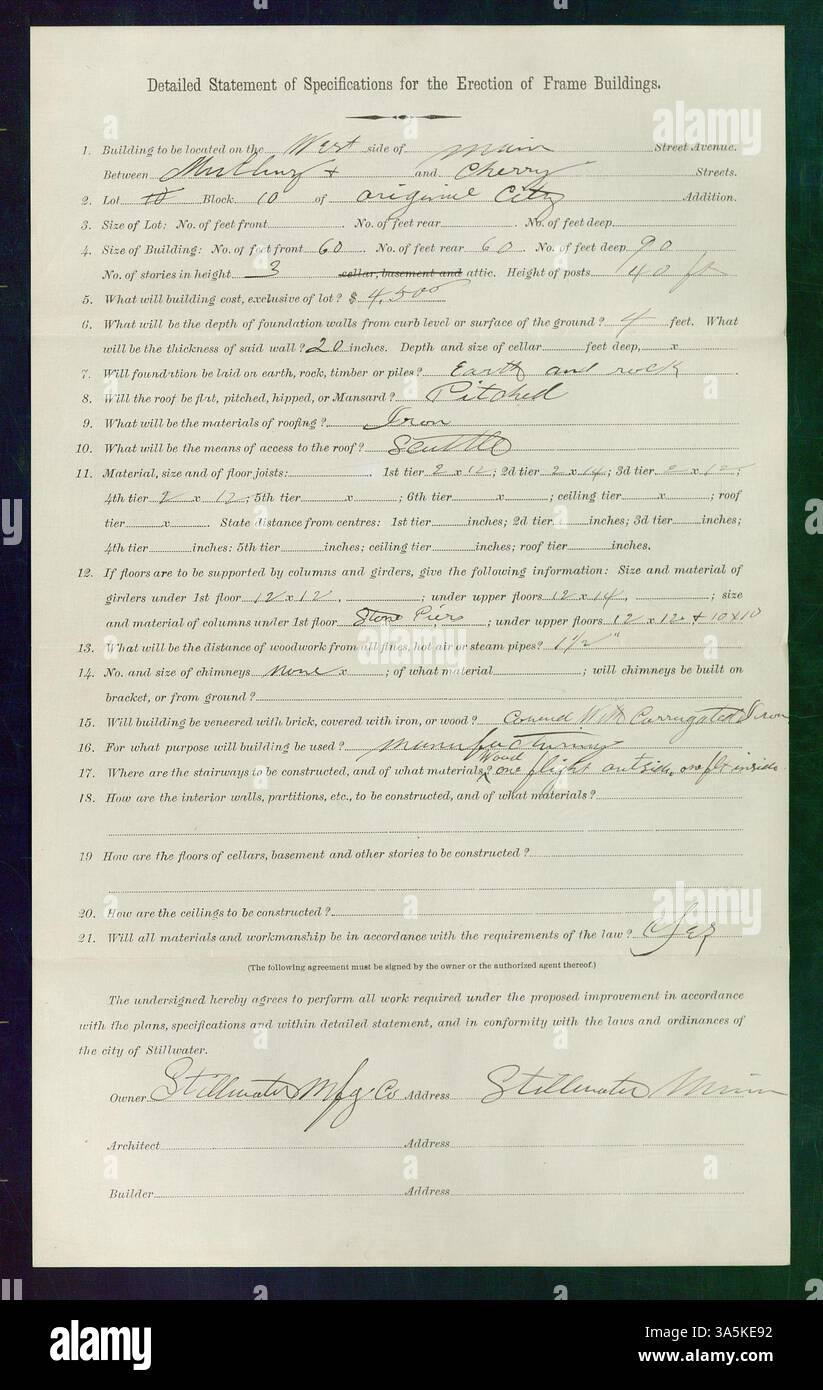 Detailed Statement of Specifications for the Erection of Frame Buildings.
1. Building to be located on the West side of Main Street Avenue.
Between Mulberry + and Cherry Streets.
2. Lot 10 Block 10 of original City Addition.
3. Size of Lot: No. of feet front No. of feet rear No. of feet deep
4. Size of Building: No. of feet front 60 No. of feet rear 60 No. of feet deep 90
No. of stories in height 3 cellar, basement and attic. Height of posts 40 ft
5. What will building cost, exclusive of lot? $ 4,500
6. What will be the depth of foundation walls from curb level or surface of the ground? 4 feet. What
will be the thickness of said wall? 20 inches. Depth and size of cellar feet deep, x
7. Will foundation be laid on earth, rock, timber or piles? Earth and rock
8. Will the roof be flat, pitched, hipped, or Mansard? Pitched
9. What will be the materials of roofing? Iron
10. What will be the means of access to the roof? Scuttle
11. Material, size and of floor joists: 1st tier 2 x 12; 2d tier 2 x 14; 3d tier 2 x 12;
4th tier 2 x 12; 5th tier x ; 6th tier x ; ceiling tier x ; roof
tier x . State distance from centres: 1st tier inches; 2d tier inches; 3d tier inches;
4th tier inches: 5th tier inches; ceiling tier inches; roof tier inches.
12. If floors are to be supported by columns and girders, give the following information: Size and material of
girders under 1st floor 12 x 12, ; under upper floors 12 x 14, ; size
and material of columns under 1st floor Stone Piers ; under upper floors 12 x 12 + 10 x 10
13. What will be the distance of woodwork from all flues, hot air or steam pipes? 1 1/2"
14. No. and size of chimneys none x ; of what material ; will chimneys be built on
bracket, or from ground?
15. Will building be veneered with brick, covered with iron, or wood? Covered With Corrugated Iron
16. For what purpose will building be used? Manufacturing
17. Where are the stairways to be constructed, and of what materials? Wood one flight outside, one flt inside
18. How are the interior walls, partitions, etc., to be constructed, and of what materials?
19 How are the floors of cellars, basement and other stories to be constructed?
20. How are the ceilings to be constructed?
21. Will all materials and workmanship be in accordance with the requirements of the law? Yes
(The following agreement must be signed by the owner or the authorized agent thereof.)
The undersigned hereby agrees to perform all work required under the proposed improvement in accordance
with the plans, specifications and within detailed statement, and in conformity with the laws and ordinances of
the city of Stillwater.
Owner Stillwater Mfg Co Address Stillwater Minn
Architect Address
Builder Address
alamy
Image ID: 3A5KE92
www.alamy.com